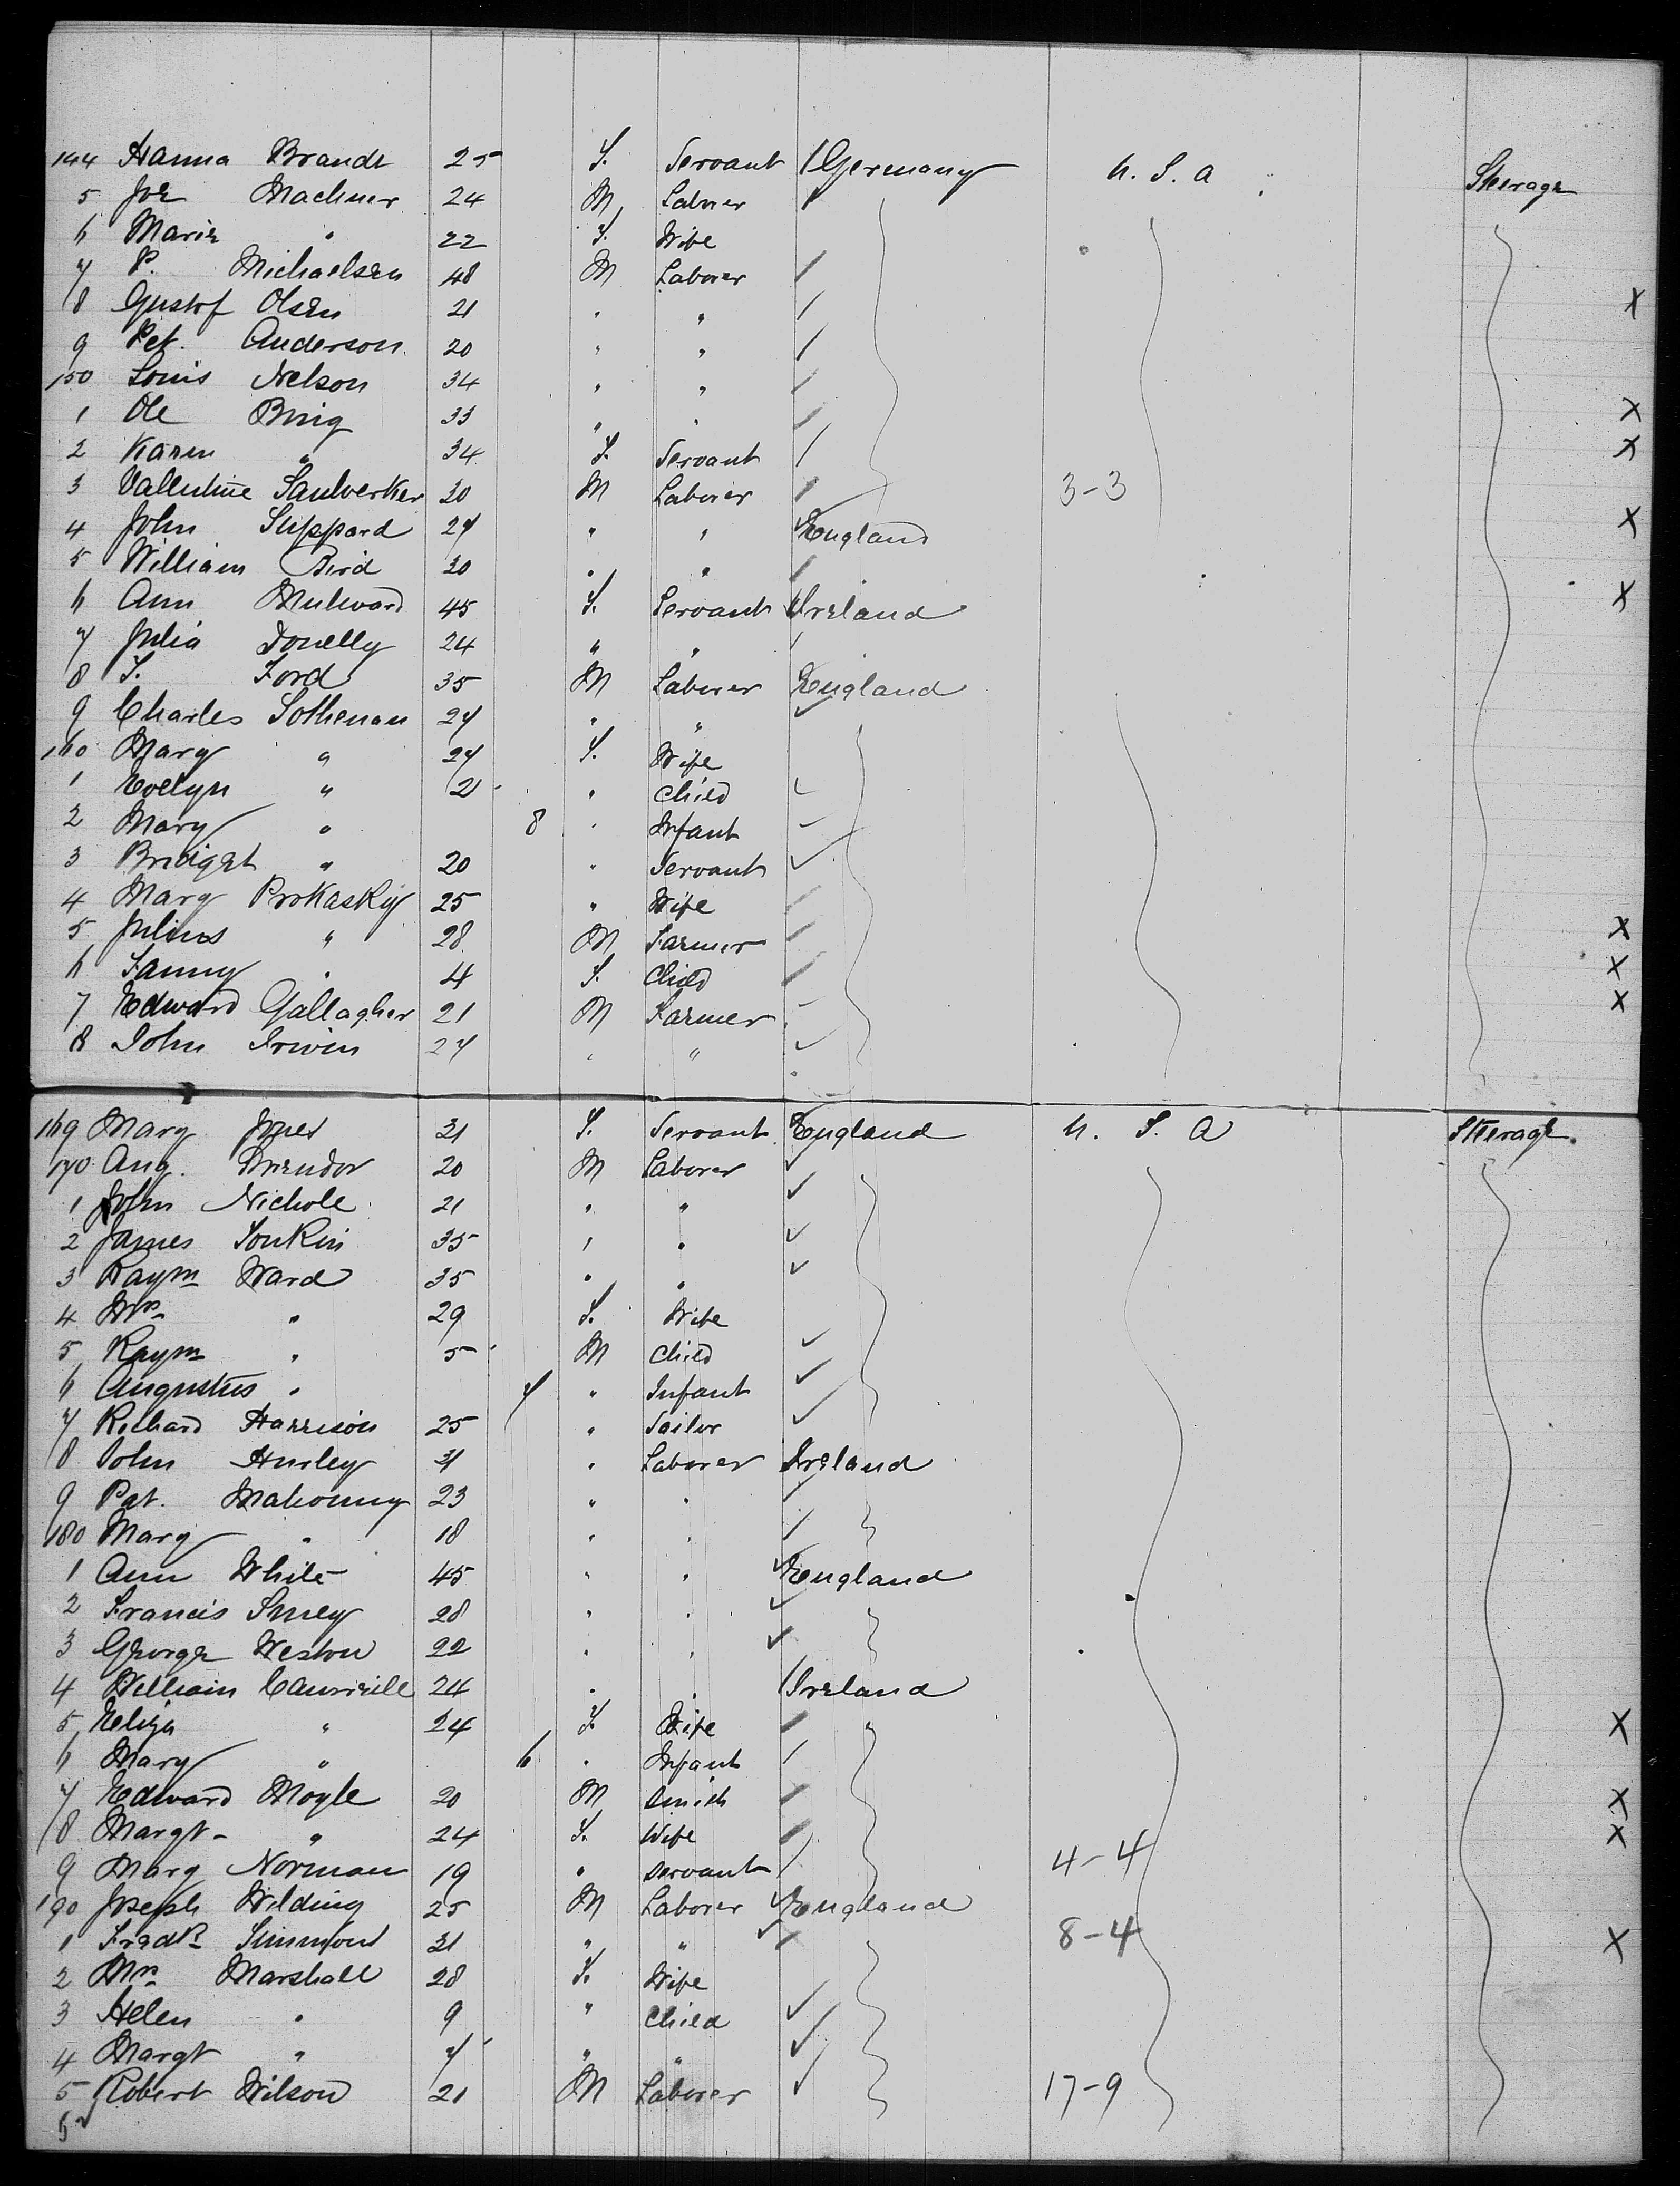 144 Hanna Brandt 25 F. Servant Germany U. S. A Steerage
5 Joe Machner 24 M Laborer
6 Marie " 22 F. Wife
7 P. Michaelsen 48 M Laborer
8 Gustof Olsen 21 " " X
9 Pet. Anderson 20 " "
150 Louis Nelson 34 " "
1 Ole Bring 33 " " X
2 Karen " 34 F. Servant X
3 Vallentine 30 M Laborer 3-3
4 John Sheppard 27 " " England X
5 William Bird 30 " "
6 Ann Mulward 45 F. Servant Ireland X
7 Julia Donelly 24 " "
8 S. Ford 35 M Laborer England
9 Charles Sotheran 27 " "
160 Mary " 27 F. Wife
1 Evelyn " 2 " Child
2 Mary " 8 " Infant
3 Bridget " 20 " Servant
4 Mary Prokasky 25 " Wife
5 Julius " 28 M Farmer X
6 Fanny " 4 F. Child X
7 Edward Gallagher 21 M Farmer X
8 John Irwin 27 " "
169 Mary Jones 31 F. Servant England U. S. A Steerage
170 Aug. 20 M Laborer
1 John Nichole 21 " "
2 James Tonkin 35 " "
3 Raym Ward 35 " "
4 Mrs " 29 F. Wife
5 Raym " 5 M Child
6 Augustus " 7 " Infant
7 Richard Harrison 25 " Sailor
8 John Hurley 31 " Laborer Ireland
9 Pat. Mahonny 23 " "
180 Mary " 18 " "
1 Ann White 45 " " England
2 Francis 28 " "
3 George Weston 22 " "
4 William 24 " " Ireland
5 Eeliza " 24 F. Wife X
6 Mary " 6 " Infant
7 Edward Moyle 20 M Smith X
8 Margt " 24 F. Wife X
9 Mary Norman 19 " Servant 4-4
190 Joseph Wilding 25 M Laborer England
1 Fredk Simmons 31 " " 8-4 X
2 Mrs Marshall 28 F. Wife
3 Helen " 9 " Child
4 Margt " 7 " "
5 Robert Wilson 21 M Laborer 17-9
6